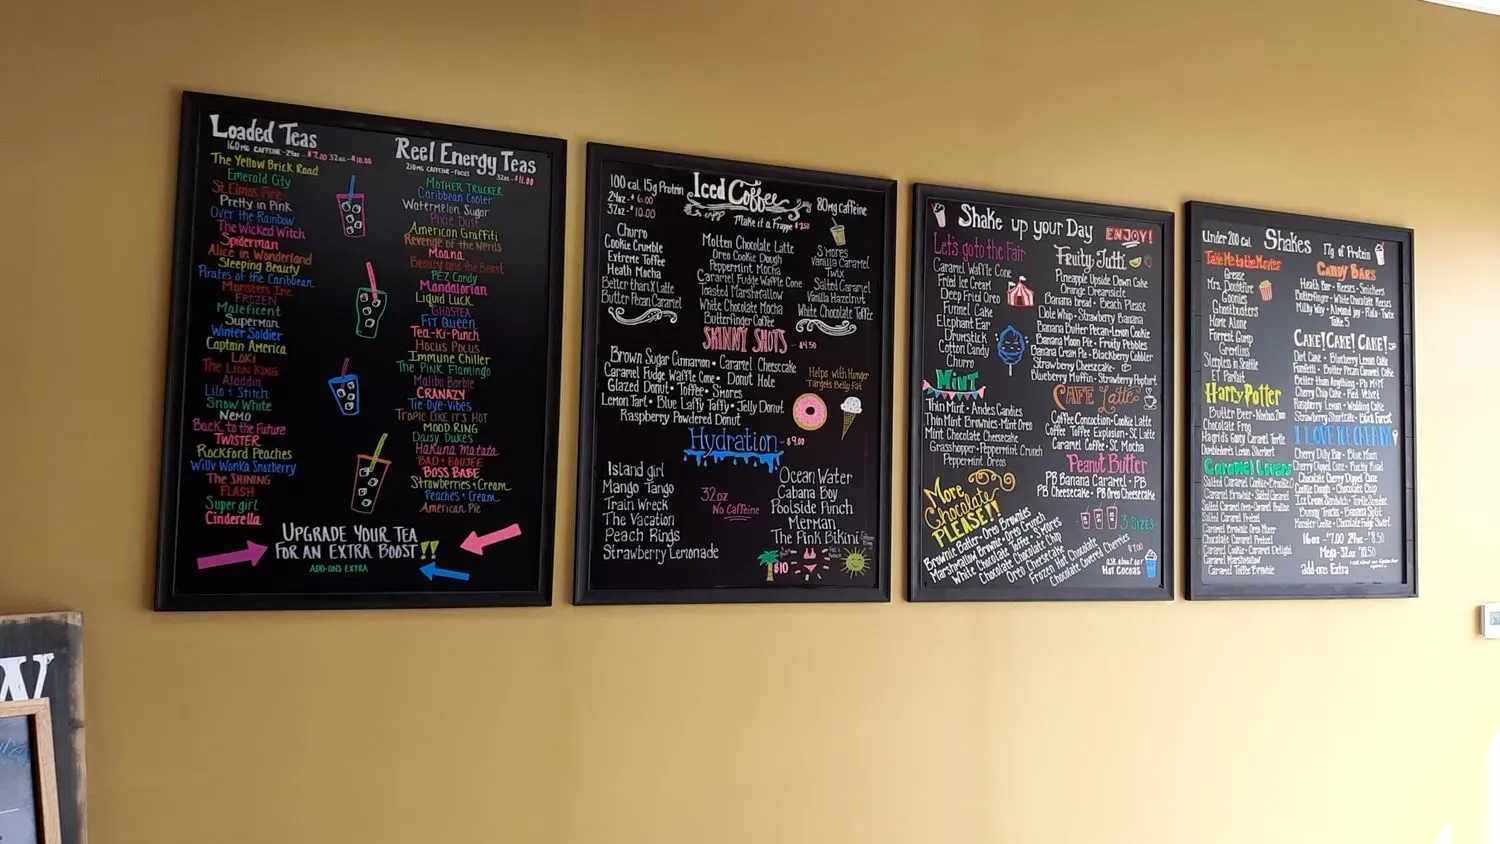 Loaded Teas
160mg CAFFEINE - 24oz - $7.00 32oz - $10.00
The Yellow Brick Road
Emerald City
St Elmos Fire
Pretty in Pink
Over the Rainbow
The Wicked Witch
Spiderman
Alice in Wonderland
Sleeping Beauty
Pirates of the Caribbean
Monsters Inc
FROZEN
Maleficent
Superman
Winter Soldier
Captain America
LOKI
The LION KING
Aladdin
Lilo & Stitch
Snow White
NEMO
Back to the Future
TWISTER
Rockford Peaches
Willy Wonka Snozberry
The SHINING
FLASH
Supergirl
Cinderella
Reel Energy Teas
210mg CAFFEINE - FOCUS 32oz - $11.00
MOTHER TRUCKER
Caribbean Cooler
Watermelon Sugar
Pixie Dust
American Graffiti
Revenge of the Nerds
Moana
Beauty and the Beast
PEZ Candy
Mandalorian
Liquid Luck
GHOSTEA
FIT Queen
Tea-Ki-Punch
Hocus Pocus
Immune Chiller
The Pink Flamingo
Malibu Barbie
CRANAZY
Tie-Dye-Vibes
Tropic Like It's HOT
MOOD RING
Daisy Dukes
Hakuna Matata
BAD & BOUJEE
BOSS BABE
Strawberries & Cream
Peaches & Cream
American Pie
UPGRADE YOUR TEA
FOR AN EXTRA BOOST!!
ADD-ONS EXTRA
100 cal. 15g Protein
24oz - $6.00
32oz - $10.00
Iced Coffee
80mg caffeine
Make it a Frappe $2.50
Churro
Cookie Crumble
Extreme Toffee
Heath Mocha
Better than X Latte
Butter Pecan Caramel
Molten Chocolate Latte
Oreo Cookie Dough
Peppermint Mocha
Caramel Fudge Waffle Cone
Toasted Marshmallow
White Chocolate Mocha
Butterfinger Coffee
S'mores
Vanilla Caramel
Twix
Salted Caramel
Vanilla Hazelnut
White Chocolate Toffee
SKINNY SHOTS - $4.50
Brown Sugar Cinnamon • Caramel Cheesecake
Caramel Fudge Waffle Cone • Donut Hole
Glazed Donut • Toffee • S'mores
Lemon Tart • Blue Laffy Taffy • Jelly Donut
Raspberry Powdered Donut
Helps with Hunger
Targets Belly Fat
Hydration - $9.00
Island girl
Mango Tango
Train Wreck
The Vacation
Peach Rings
Strawberry Lemonade
32oz
No Caffeine
Ocean Water
Cabana Boy
Poolside Punch
Merman
The Pink Bikini
$10
Shake up your Day ENJOY!
Let's go to the Fair
Caramel Waffle Cone
Fried Ice Cream
Deep Fried Oreo
Funnel Cake
Elephant Ear
Drumstick
Cotton Candy
Churro
Mint
Thin Mint • Andes Candies
Thin Mint Brownies • Mint Oreo
Mint Chocolate Cheesecake
Grasshopper • Peppermint Crunch
Peppermint Oreos
More
Chocolate
PLEASE!!
Brownie Batter • Oreo Brownies
Marshmallow Brownie • Oreo Crunch
White Chocolate Toffee • S'mores
Chocolate Chocolate Chip
Oreo Cheesecake
Frozen Hot Chocolate
Chocolate Covered Cherries
Fruity Tutti
Pineapple Upside Down Cake
Orange Dreamsicle
Banana bread • Beach Please
Dole Whip • Strawberry Banana
Banana Butter Pecan • Lemon Cookie
Banana Moon Pie • Fruity Pebbles
Banana Cream Pie • Blackberry Cobbler
Strawberry Cheesecake
Blueberry Muffin • Strawberry Poptart
CAFE Latte
Coffee Concoction • Cookie Latte
Coffee Toffee Explosion • SC Latte
Caramel Coffee • SC Mocha
Peanut Butter
PB Banana Caramel • PB
PB Cheesecake • PB Oreo Cheesecake
3 SIZES
$7.00
ask about our
Hot Cocoas
Under 200 Cal Shakes 17g of Protein
Take Me to the Movies
Grease
Mrs. Doubtfire
Goonies
Ghostbusters
Home Alone
Forrest Gump
Gremlins
Sleepless in Seattle
ET
Harry Potter
Butter Beer
Chocolate Frog
Hagrid's Gooey Caramel Turtle
Dumbledore's Lemon Sherbert
Caramel Lovers
Salted Caramel Pretzel
Caramel Brownie Oreo Mixer
Chocolate Caramel Pretzel
Caramel Cookie • Caramel Delight
Caramel Marshmallow
Caramel Toffee Brownie
CANDY BARS
Heath Bar • Reeses • Snickers
Butterfinger • White Chocolate Reeses
Milky Way • Almond Joy • Rolo • Twix
Take 5
CAKE! CAKE! CAKE!
Dirt Cake • Blueberry Lemon Cake
Funfetti • Butter Pecan Caramel Cake
Better than Anything • PB M&M
Cherry Chip Cake • Red Velvet
Raspberry Lemon • Wedding Cake
Strawberry Shortcake • Black Forest
I LOVE ICE CREAM
Cherry Dilly Bar • Blue Moon
Cherry Dipped Cone • Rocky Road
Chocolate Cherry Dipped Cone
Cookie Dough • Chocolate Chip
Ice Cream Sandwich • Turtle Sundae
Bunny Tracks • Banana Split
Monster Cookie • Chocolate Fudge Swirl
16oz - $7.00 24oz - $8.50
Mega-32oz $10.50
add-ons Extra